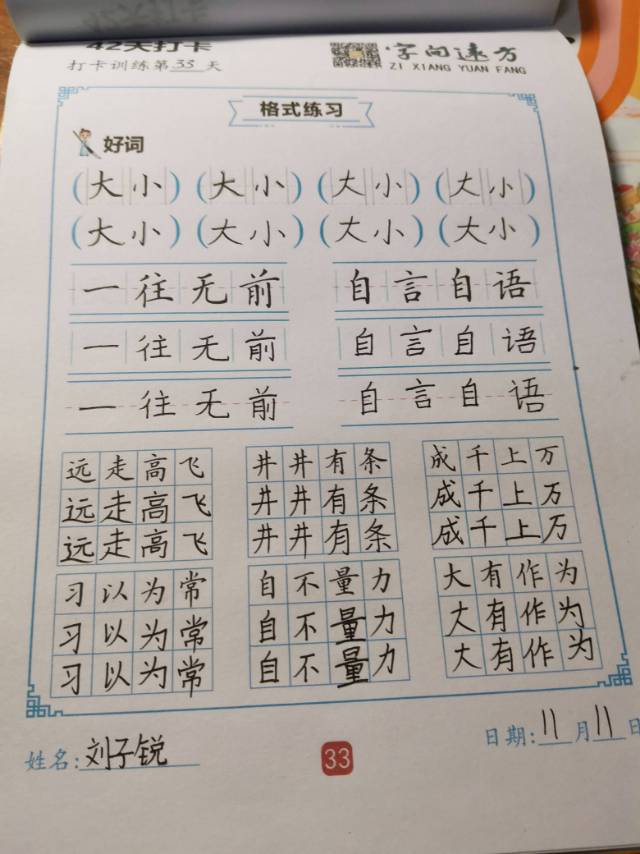 42天打卡
字向速方
打卡训练第33天
ZI XIANG YUAN FANG
格式练习
好词
(大小) (大小) (大小) (大小)
(大小) (大小) (大小) (大小)
一往无前 自言自语
一往无前 自言自语
一往无前 自言自语
远走高飞 井井有条 成千上万
远走高飞 井井有条 成千上万
远走高飞 井井有条 成千上万
习以为常 自不量力 大有作为
习以为常 自不量力 大有作为
习以为常 自不量力 大有作为
姓名:刘子锐 33 日期:11月11日